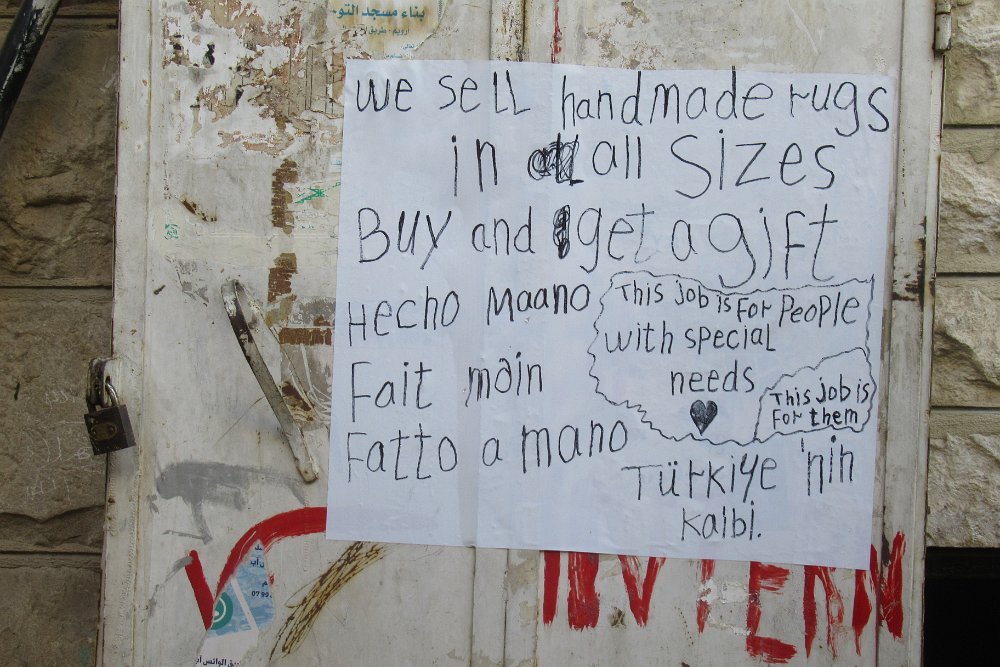 بناء مسجد التو
we sell handmade rugs
in all sizes
Buy and get a gift
Hecho Maano
Fait main
Fatto a mano
This job is For People
with special
needs
This job is
For them
Türkiye 'nin
Kalbi.